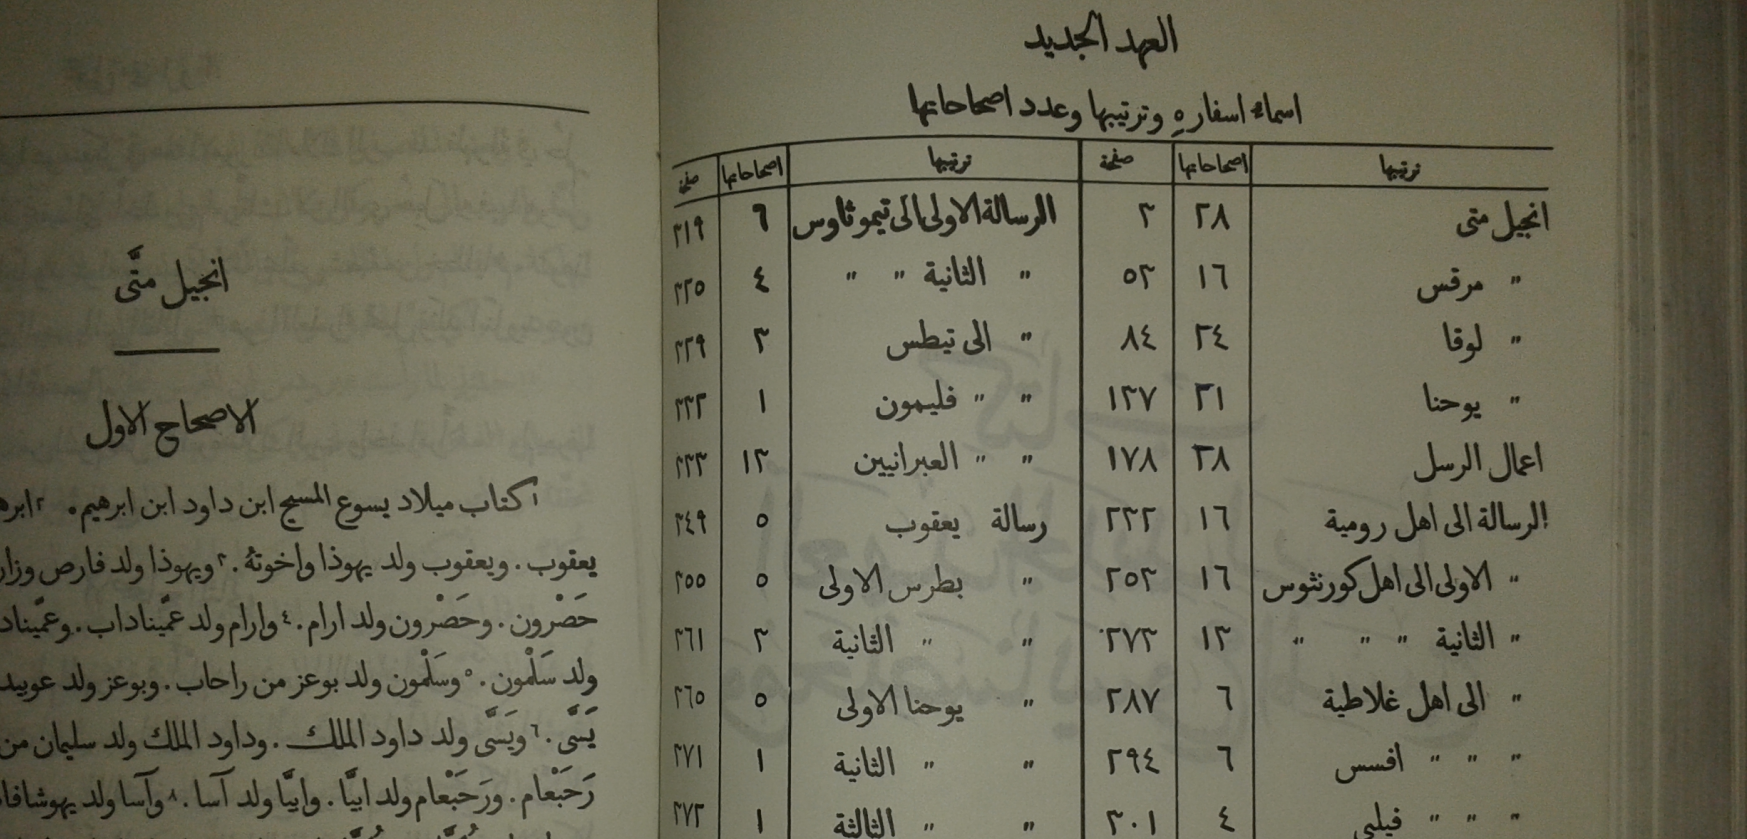 العهد الجديد
اسماء اسفاره وترتيبها وعدد اصحاحاتها
ترتيبها اصحاحاتها صفحة ترتيبها اصحاحاتها صفحة
انجيل متى ٢٨ ٣ الرسالة الاولى الى تيموثاوس ٦ ٣١٩
" مرقس ١٦ ٥٣ " الثانية " " ٤ ٣٢٥
" لوقا ٢٤ ٨٤ " الى تيطس ٣ ٣٢٩
" يوحنا ٢١ ١٣٧ " " فليمون ١ ٣٣٢
اعمال الرسل ٢٨ ١٧٨ " " العبرانيين ١٣ ٣٣٣
الرسالة الى اهل رومية ١٦ ٢٣٢ رسالة يعقوب ٥ ٣٤٩
" الاولى الى اهل كورنثوس ١٦ ٢٥٣ " بطرس الاولى ٥ ٣٥٥
" الثانية " " " ١٣ ٢٧٣ " " الثانية ٣ ٣٦١
" الى اهل غلاطية ٦ ٢٨٧ " يوحنا الاولى ٥ ٣٦٥
" " " افسس ٦ ٢٩٤ " " الثانية ١ ٣٧١
" " " فيلبي ٤ ٣٠١ " " الثالثة ١
انجيل متَّى
الاصحاح الاول
١ كتاب ميلاد يسوع المسيح ابن داود ابن ابرهيم. ٢
يعقوب. ويعقوب ولد يهوذا واخوتهُ. ٣ ويهوذا ولد فارص
حَصْرون. وحَصْرون ولد ارام. ٤ وارام ولد عمّيناداب.
ولد سَلْمون. ٥ وسَلْمون ولد بوعز من راحاب. وبوعز ولد عوبيد
يَسَّى. ٦ ويَسَّى ولد داود الملك. وداود الملك ولد سليمان من
رَحَبْعام. ورَحَبْعام ولد ابيَّا. وابيَّا ولد آسا. ٨ وآسا ولد